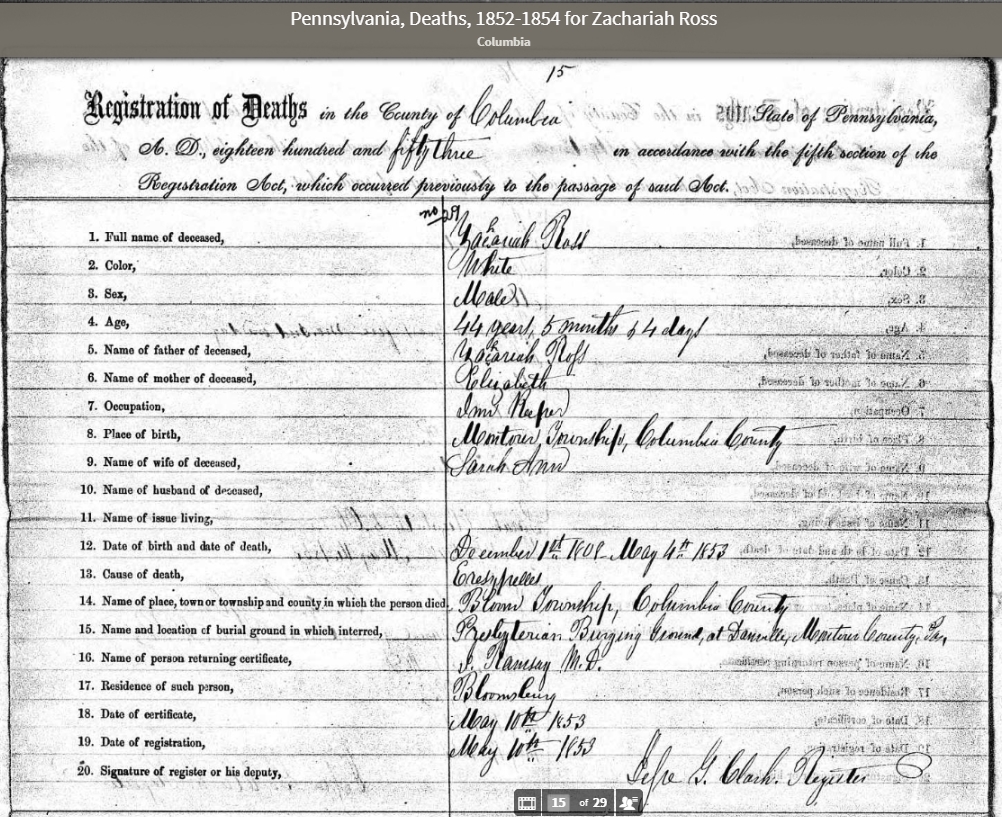 Pennsylvania, Deaths, 1852-1854 for Zachariah Ross
Columbia
15
Registration of Deaths in the County of Columbia State of Pennsylvania,
A. D., eighteen hundred and fifty three in accordance with the fifth section of the
Registration Act, which occurred previously to the passage of said Act.
no 29
1. Full name of deceased, Zachariah Ross
2. Color, White
3. Sex, Male
4. Age, 44 years, 5 months & 4 days
5. Name of father of deceased, Zachariah Ross
6. Name of mother of deceased, Elizabeth
7. Occupation, Inn Keeper
8. Place of birth, Montour Township, Columbia County
9. Name of wife of deceased, Sarah Ann
10. Name of husband of deceased,
11. Name of issue living,
12. Date of birth and date of death, December 1st 1808 - May 4th 1853
13. Cause of death,
14. Name of place, town or township and county in which the person died. Bloom Township, Columbia County
15. Name and location of burial ground in which interred, Presbyterian Burying Ground, at Danville, Montour County, Pa,
16. Name of person returning certificate, Ramsay M.D.
17. Residence of such person, Bloomsburg
18. Date of certificate, May 10th 1853
19. Date of registration, May 10th 1853
20. Signature of register or his deputy, Jesse G. Clark. Register
15 of 29